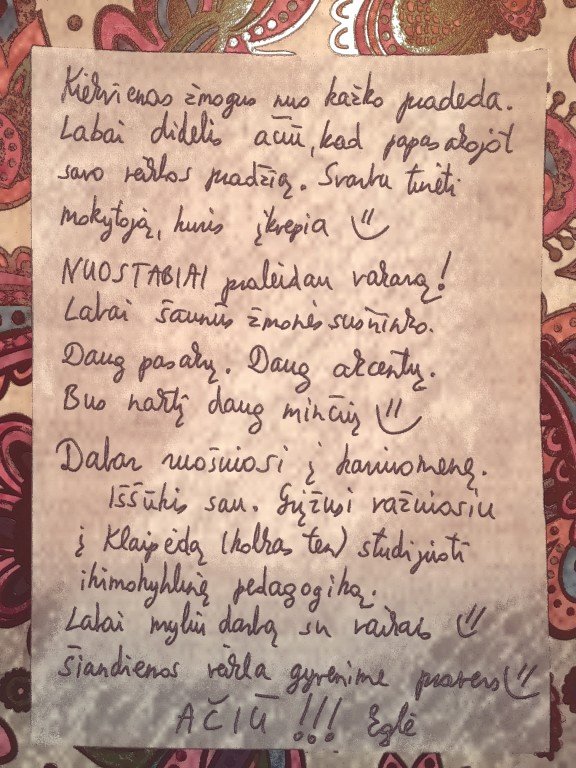 Kiekvienas žmogus nuo kažko pradeda.
Labai didelis ačiū, kad papasakojot
savo veiklos pradžią. Svarbu turėti
mokytoją, kuris įkvepia
NUOSTABIAI praleidau vakarą!
Labai šaunūs žmonės susirinko.
Daug pasakų. Daug akcentų.
Bus naktį daug minčių
Dabar ruošiuosi į kariuomenę.
Iššūkis sau. Grįžusi važiuosiu
į Klaipėdą (kolkas ten) studijuoti
ikimokyklinę pedagogiką.
Labai myliu darbą su vaikais
Šiandienos veikla gyvenime pravers
AČIŪ !!! Eglė